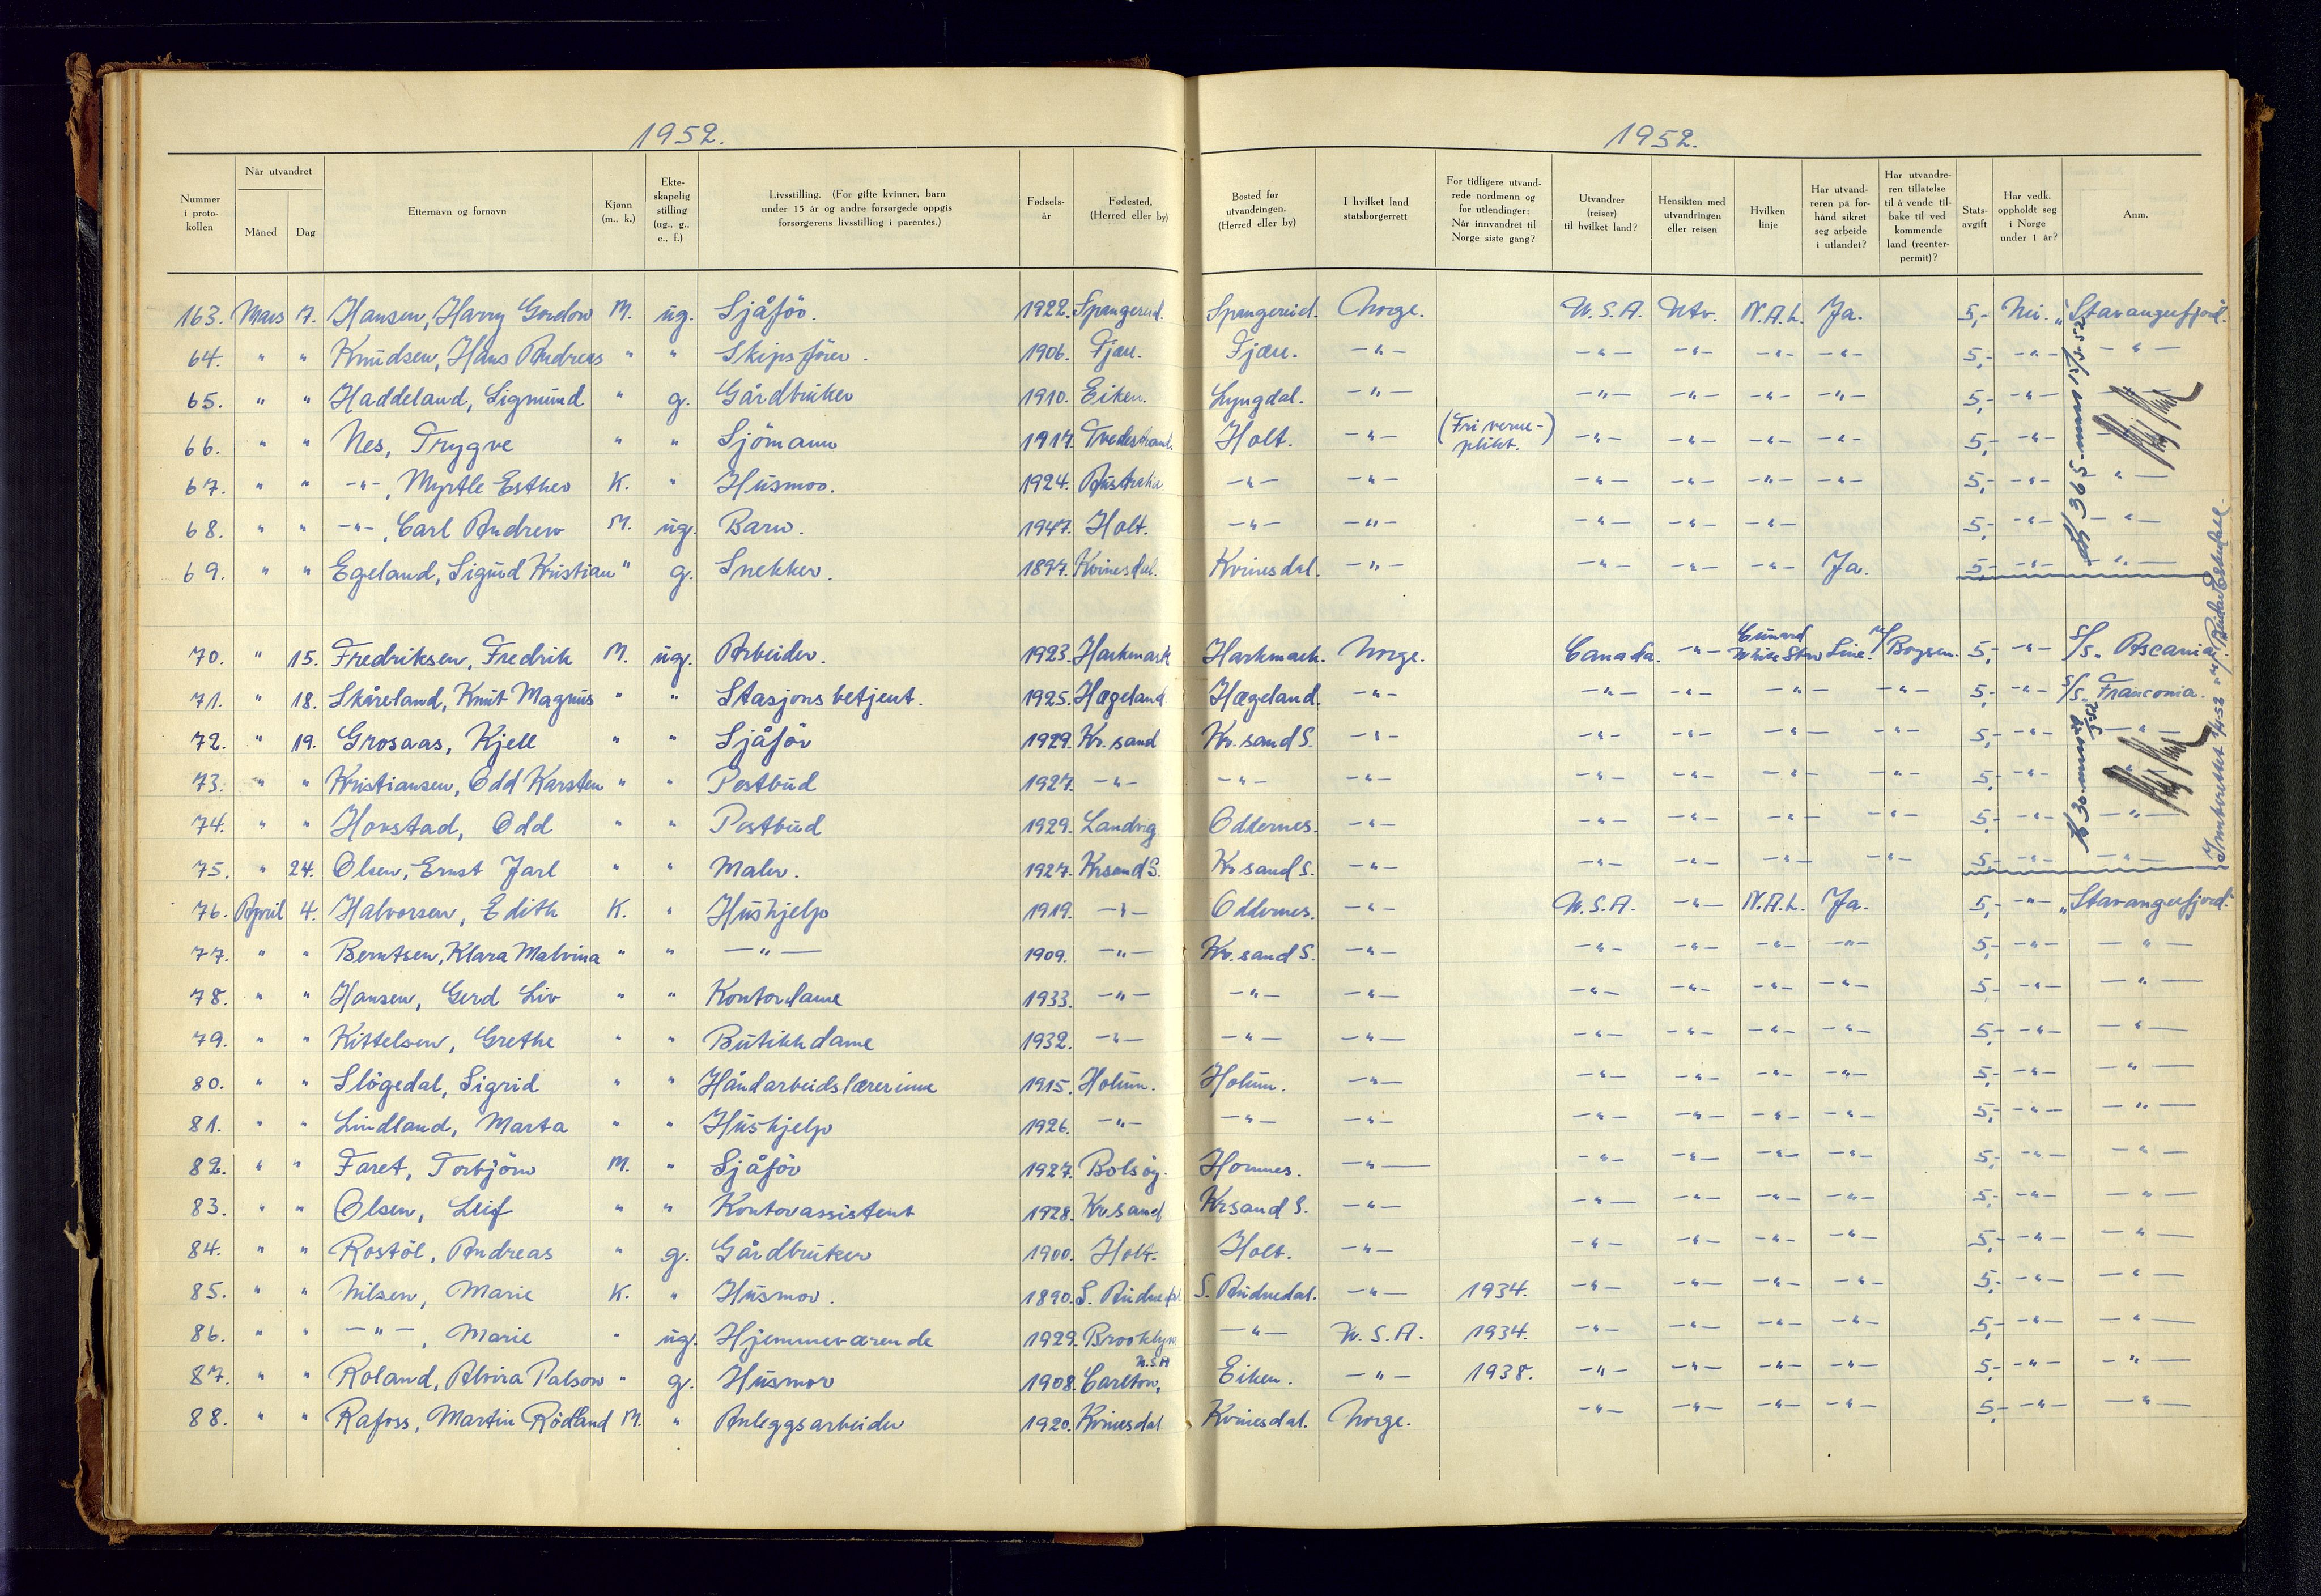 1952.
1952.
Nummer i proto- kollen | Når utvandret | Måned | Dag | Etternavn og fornavn | Kjønn (m., k.) | Ekte- skapelig stilling (ug., g., e., f.) | Livsstilling. (For gifte kvinner, barn under 15 år og andre forsørgede oppgis forsørgerens livsstilling i parentes.) | Fødsels- år | Fødested. (Herred eller by) | Bosted før utvandringen. (Herred eller by) | I hvilket land statsborgerrett | For tidligere utvand- rede nordmenn og for utlendinger: Når innvandret til Norge siste gang? | Utvandrer (reiser) til hvilket land? | Hensikten med utvandringen eller reisen | Hvilken linje | Har utvand- reren på for- hånd sikret seg arbeide i utlandet? | Har utvandre- ren tillatelse til å vende til- bake til ved kommende land (reenter- permit)? | Stats- avgift | Har vedk. oppholdt seg i Norge under 1 år? | Anm.
163. Mars 17. Hansen, Harry Gordon M. ug. Sjåför. 1922. Spangereid. Spangereid. Norge. U.S.A. Utv. N.A.L. Ja. 5,- Nei. "Stavangerfjord".
64. " " Knudsen, Hans Andreas " " Skipsförer. 1906. Fjære. Fjære. -"- -"- -"- -"- -"- 5,- -"- -"-
65. " " Haddeland, Sigmund " g. Gårdbruker 1910. Eiken. Lyngdal. -"- -"- -"- -"- -"- 5,- -"-
66. " " Nes, Trygve " " Sjömann 1917. Tvedestrand. Holt. -"- (Fri verne- plikt.) -"- -"- -"- -"- 5,- -"-
67. " " -"-, Myrtle Esther K. " Husmor. 1924. Australia. -"- -"- -"- -"- -"- -"- 5,- -"- -"-
68. " " -"-, Carl Andrew M. ug. Barn. 1947. Holt. -"- -"- -"- -"- -"- 5,- -"- -"-
69. " " Egeland, Sigurd Kristian " g. Snekker. 1897. Kvinesdal. Kvinesdal. -"- -"- -"- -"- Ja. 5,- -"- -"-
70. " 15. Fredriksen, Fredrik M. ug. Arbeider. 1923. Harkmark Harkmark. Norge. Canada. -"- Cunard White Star Line. Boysen. 5,- -"- S/S "Ascania".
71. " 18. Skåreland, Knut Magnus " " Stasjonsbetjent. 1925. Hægeland Hægeland. -"- -"- -"- -"- -"- 5,- -"- S/S. Franconia.
72. " 19. Grosaas, Kjell " " Sjåför 1929. Kr. sand Kr. sand S. -"- -"- -"- -"- -"- 5,- -"- -"-
73. " " Kristiansen, Odd Karsten " " Postbud 1927. -"- -"- -"- -"- -"- -"- -"- 5,- -"- -"-
74. " " Hovstad, Odd " " Postbud 1929. Landvig Oddernes. -"- -"- -"- -"- -"- 5,- -"- -"-
75. " 24. Olsen, Ernst Jarl " " Maler. 1927. Krsand S. Kr sand S. -"- -"- -"- -"- -"- 5,- -"- -"-
76. April 4. Halvorsen, Edith K. " Hushjelp 1919. -"- Oddernes. -"- U.S.A. -"- N.A.L. Ja. 5,- -"- "Stavangerfjord".
77. " " Berntsen, Klara Malvina " " -"- 1909. -"- Kr. sand S. -"- -"- -"- -"- -"- 5,- -"- -"-
78. " " Hansen, Gerd Liv " " Kontordame 1933. -"- -"- -"- -"- -"- -"- -"- 5,- -"- -"-
79. " " Kittelsen, Grethe " " Butikkdame 1932. -"- -"- -"- -"- -"- -"- -"- 5,- -"- -"-
80. " " Slögedal, Sigrid " " Håndarbeidslærerinne 1915. Holum. Holum. -"- -"- -"- -"- -"- 5,- -"- -"-
81. " " Lindland, Marta " " Hushjelp 1926. -"- -"- -"- -"- -"- -"- -"- 5,- -"- -"-
82. " " Faret, Torbjörn M. " Sjåför 1927. Bolsöy. Homnes. -"- -"- -"- -"- -"- 5,- -"- -"-
83. " " Olsen, Leif " " Kontorassistent 1928. Kr.sand Krsand S. -"- -"- -"- -"- -"- 5,- -"- -"-
84. " " Rostöl, Andreas " g. Gårdbruker 1900. Holt. Holt. -"- -"- -"- -"- -"- 5,- -"- -"-
85. " " Nilsen, Marie K. " Husmor. 1890. S. Audnedal S. Audnedal. -"- 1934. -"- -"- -"- -"- 5,- -"- -"-
86. " " -"-, Marie " ug. Hjemmeværende 1929. Brooklyn -"- U.S.A. 1934. -"- -"- -"- -"- 5,- -"- -"-
87. " " Roland, Alvira Palson " g. Husmor 1908. Carlton, U.S.A Eiken. -"- 1938. -"- -"- -"- -"- 5,- -"- -"-
88. " " Rafoss, Martin Rödland M. " Anleggsarbeider 1920. Kvinesdal Kvinesdal. Norge. -"- -"- -"- -"- 5,- -"- -"-